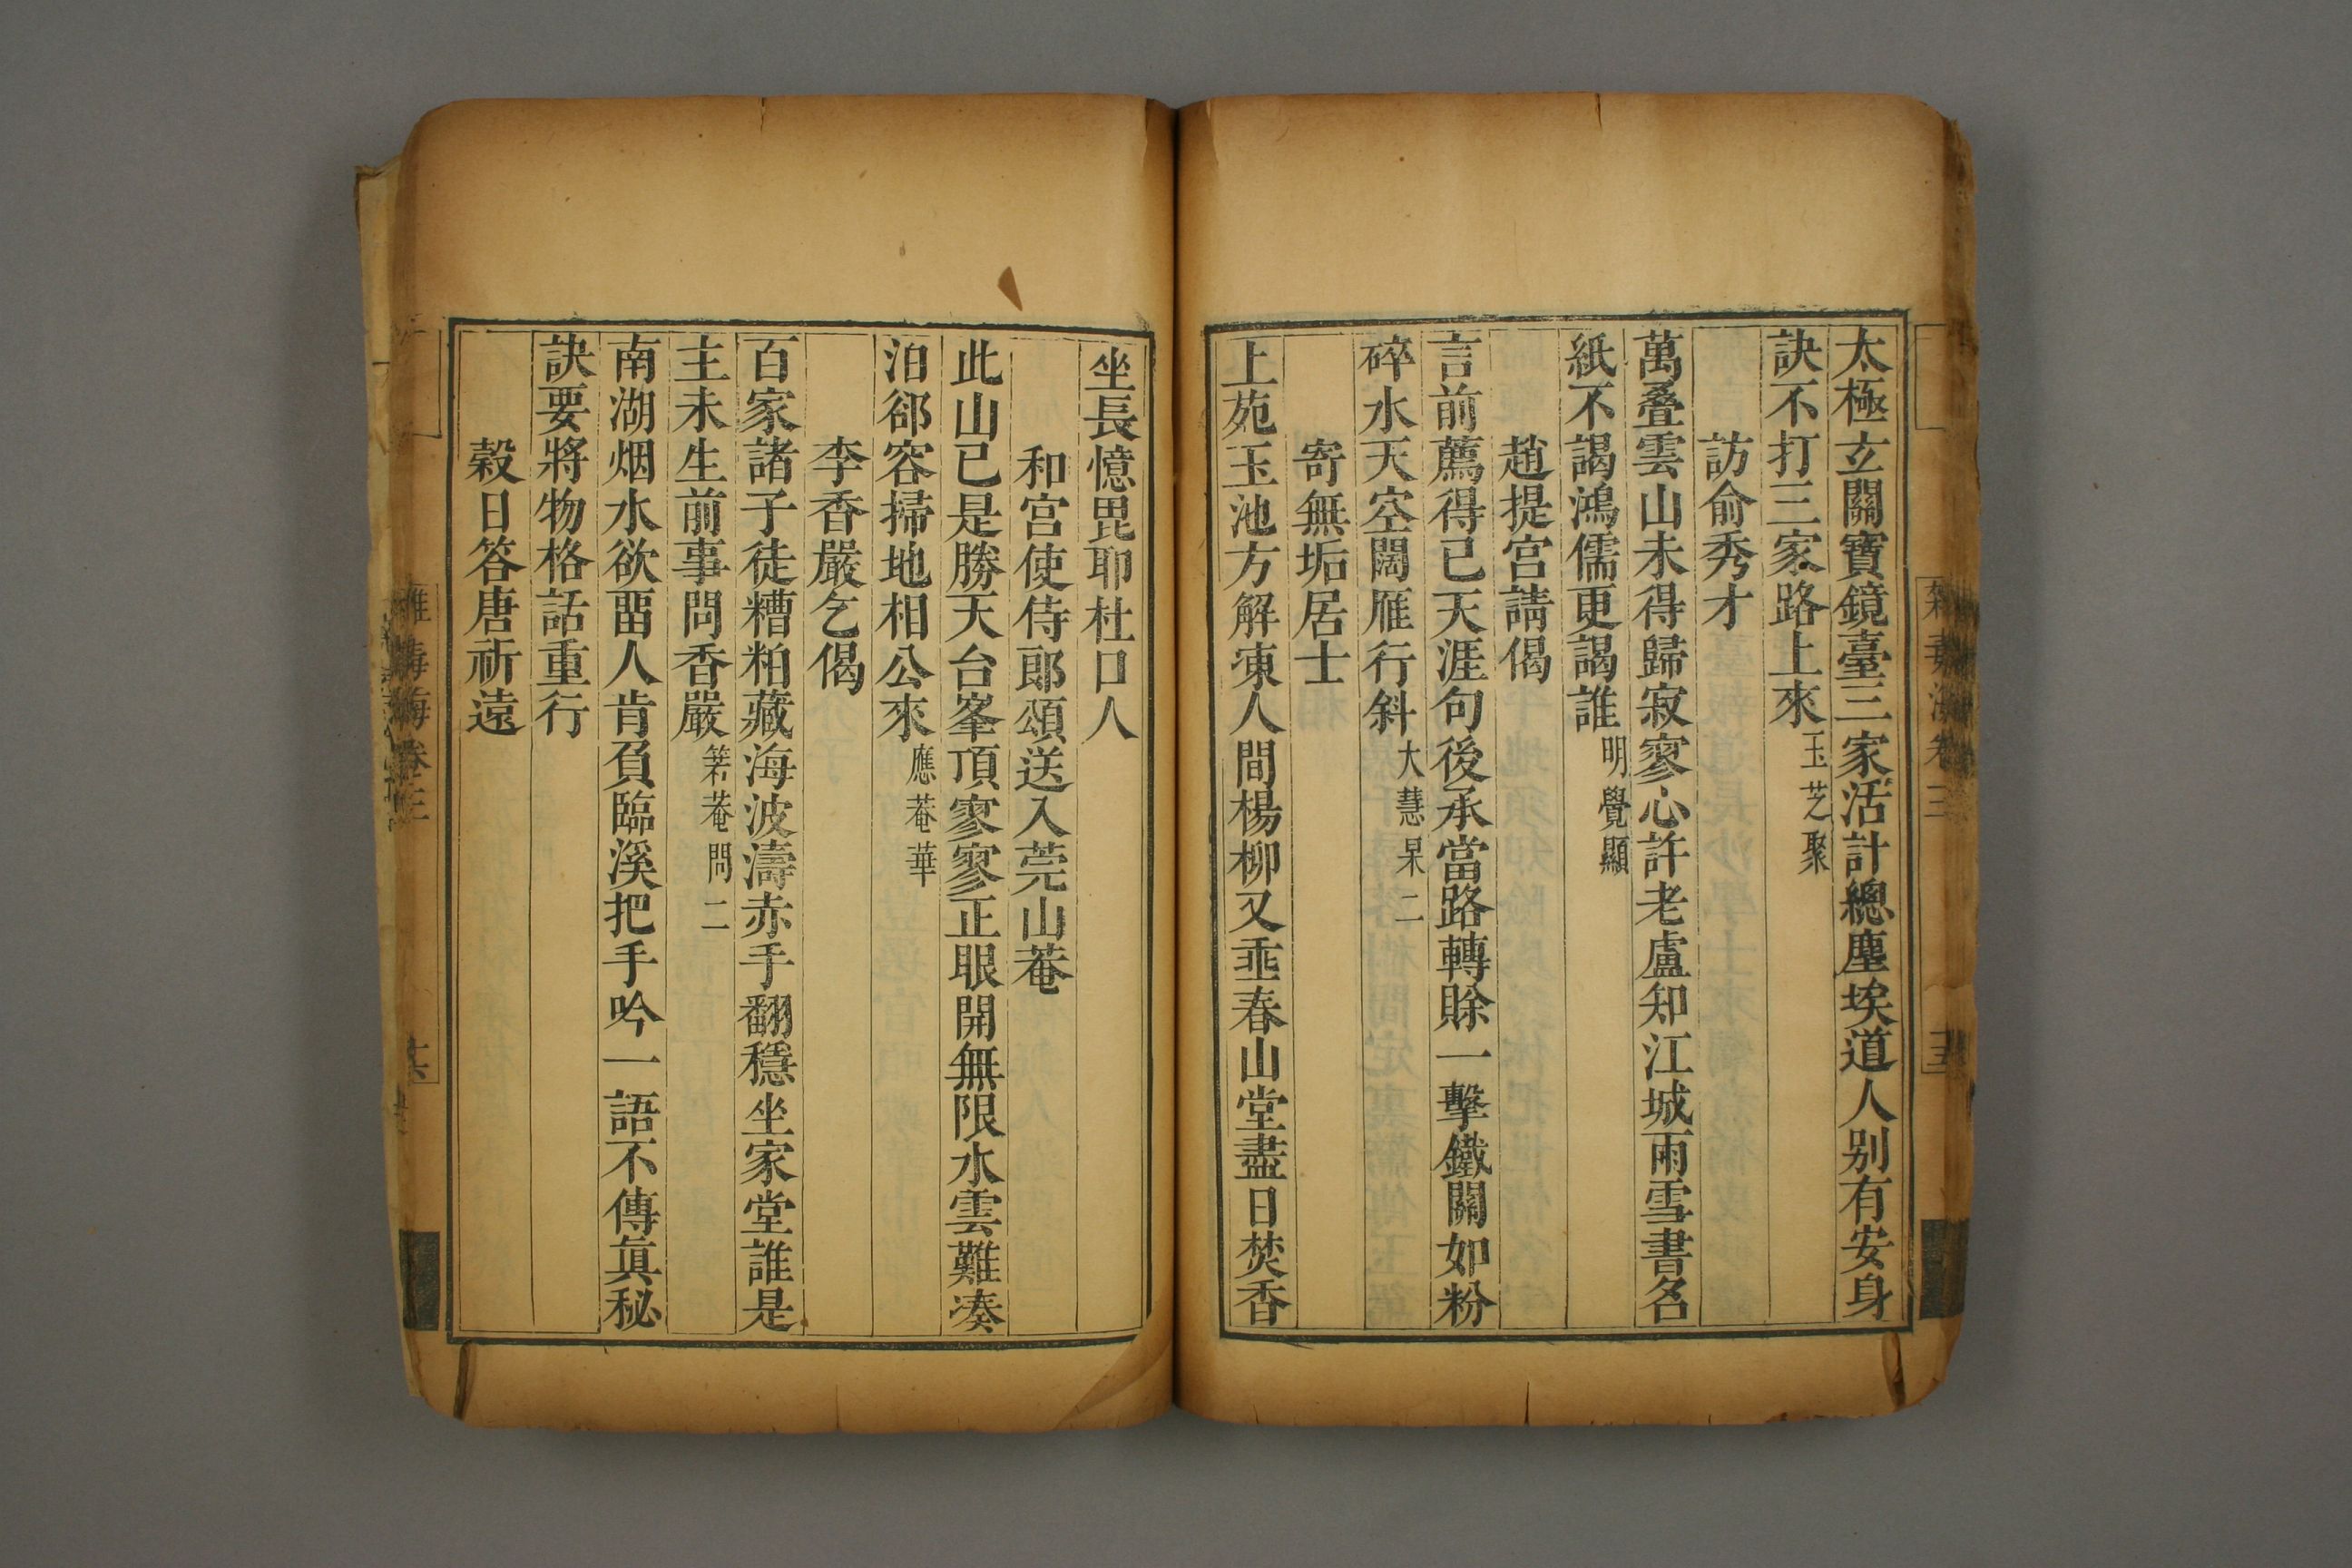 太極玄關寶鏡臺三家活計總塵埃道人别有安身
訣不打三家路上來玉芝聚
訪俞秀才
萬叠雲山未得歸寂寥心許老盧知江城雨雪書名
紙不謁鴻儒更謁誰明覺顯
趙提宫請偈
言前薦得已天涯句後承當路轉賒一擊鐵關如粉
碎水天空闊雁行斜大慧杲二
寄無垢居士
上苑玉池方解凍人間楊柳又垂春山堂盡日焚香
坐長憶毘耶杜口人
和宫使侍郎頌送入莞山菴
此山已是勝天台峯頂寥寥正眼開無限水雲難凑
泊郤容掃地相公來應菴華
李香嚴乞偈
百家諸子徒糟粕藏海波濤赤手翻穩坐家堂誰是
主未生前事問香嚴箬菴問二
南湖烟水欲畱人肯負臨溪把手吟一語不傳眞秘
訣要將物格話重行
穀日答唐祈遠
海卷三